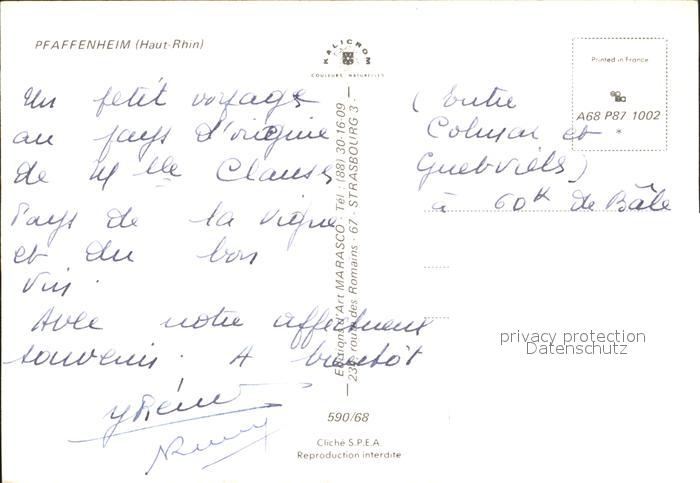 PFAFFENHEIM (Haut-Rhin)
KALICROM
COULEURS NATURELLES
Printed in France
A68 P87 1002
*
Un petit voyage
au pays d'origine
de Mlle Clauss
Pays de la vigne
et du bon
vin.
Avec notre affectueux
souvenir. A bientôt
(Entre
Colmar et
Guebviller)
à 60K de Bâle
Editions d'Art MARASCO · Tél : (88) 30-16-09
238, route des Romains · 67 - STRASBOURG 3 ·
privacy protection
Datenschutz
590/68
Cliché S.P.E.A.
Reproduction interdite